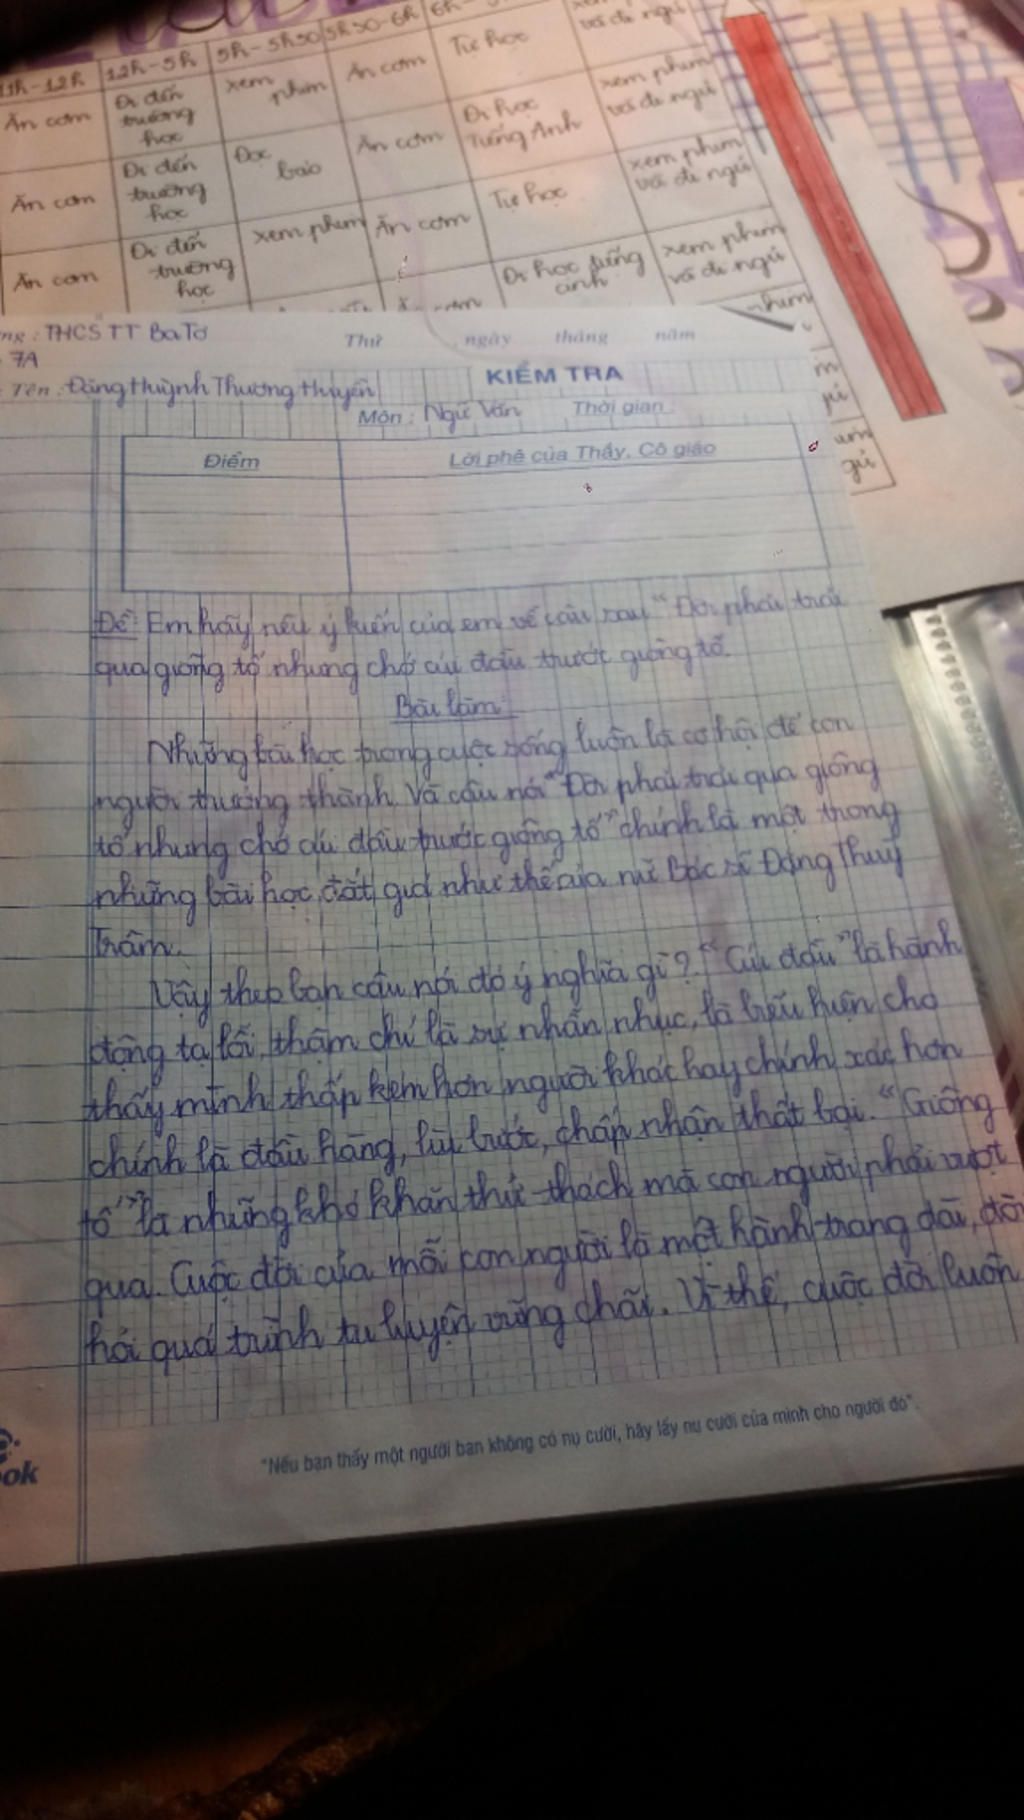 11h-12h 12h-5h 5h-5h30 5h30-6h 6h-
Ăn cơm Đi đến trường học xem phim Ăn cơm Tự học và đi ngủ
Ăn cơm Đi đến trường học Đọc báo Ăn cơm Đi học Tiếng Anh xem phim và đi ngủ
Ăn cơm Đi đến trường học xem phim Ăn cơm Tự học xem phim và đi ngủ
Đi học tiếng anh xem phim và đi ngủ
: THCS TT Ba Tơ
7A
Thứ ngày tháng năm
Tên: Đặng Huỳnh Thương Huyền
KIỂM TRA
Môn: Ngữ Văn Thời gian:
Điểm Lời phê của Thầy, Cô giáo
Đề: Em hãy nêu ý kiến của em về câu sau "Đời phải trải
qua giông tố nhưng chớ cúi đầu trước giông tố.
Bài làm
Những bài học trong cuộc sống luôn là cơ hội để con
người trưởng thành. Và câu nói "Đời phải trải qua giông
tố nhưng chớ cúi đầu trước giông tố" chính là một trong
những bài học đắt giá như thế của nữ bác sĩ Đặng Thuỳ
Trâm.
Vậy theo bạn câu nói đó ý nghĩa gì? "Cúi đầu" là hành
động tạ lỗi, thậm chí là sự nhẫn nhục, là biểu hiện cho
thấy mình thấp kém hơn người khác hay chính xác hơn
chính là đầu hàng, lùi bước, chấp nhận thất bại. "Giông
tố" là những khó khăn thử thách mà con người phải vượt
qua. Cuộc đời của mỗi con người là một hành trang dài, đòi
hỏi quá trình tu luyện vững chãi. Vì thế, cuộc đời luôn
"Nếu bạn thấy một người bạn không có nụ cười, hãy lấy nụ cười của mình cho người đó".
ok